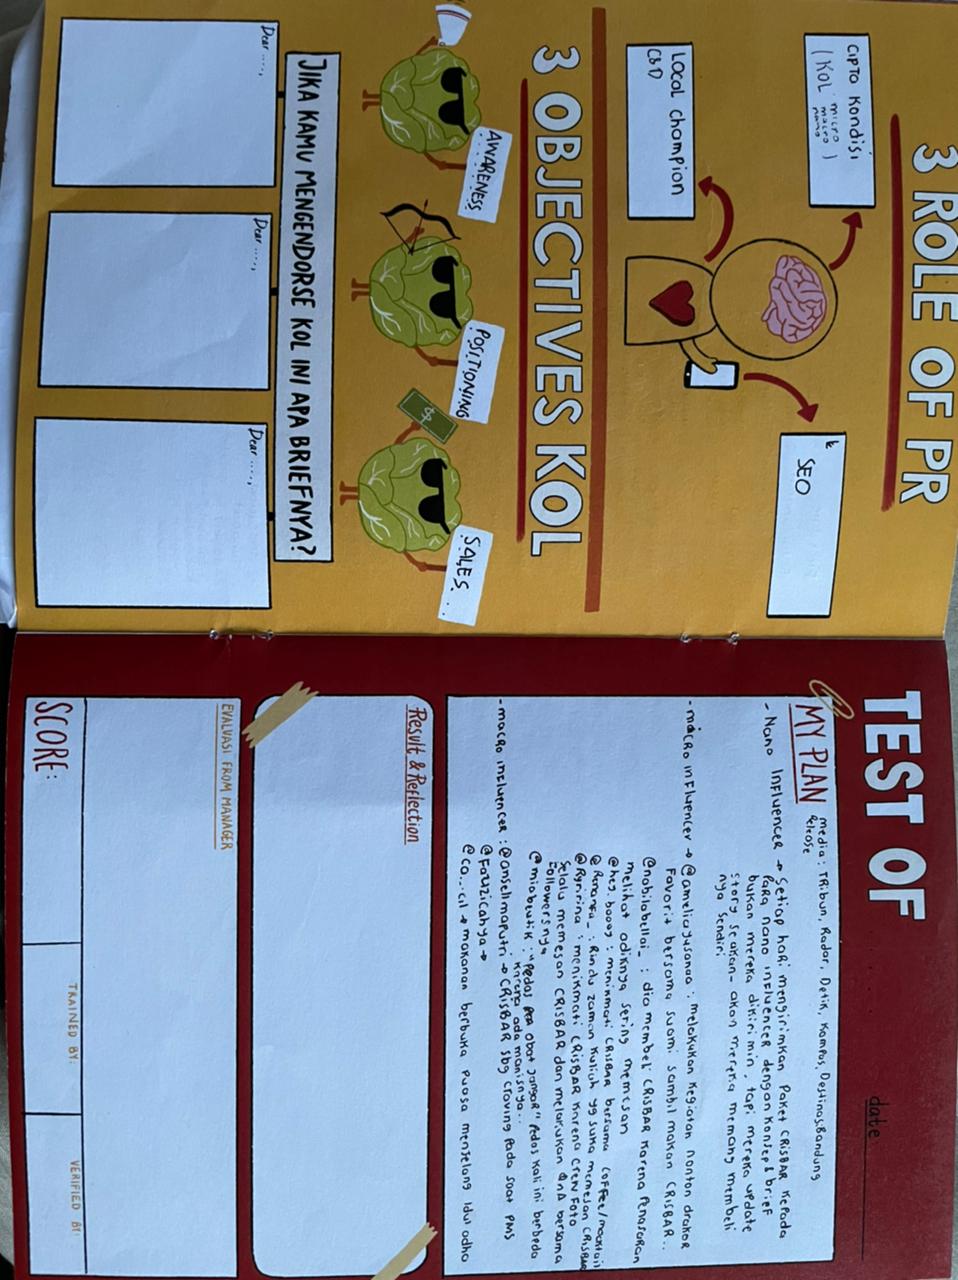 3 ROLE OF PR
Cipto Kondisi
( KOL micro macro nano )
Local champion
CBD
SEO
3 OBJECTIVES KOL
AWARENESS
POSITIONING
SALES
$
JIKA KAMU MENGENDORSE KOL INI APA BRIEFNYA?
Dear .....,
Dear .....,
Dear .....,
TEST OF ........
date
MY PLAN
Media : Tribun, Radar, Detik, Kompas, DestinasiBandung
Release
- Nano Influencer → Setiap hari mengirimkan Paket CRISBAR Kepada
Para nano influencer dengan Konsep & brief
bukan mereka dikirimin, tapi mereka update
story seakan-akan mereka memang membeli
nya sendiri
- micro influencer → @ameliayusanaa : melakukan kegiatan nonton drakor
Favorit bersama suami sambil makan CRISBAR..
@nabilabellai_ : dia membeli CRISBAR karena Penasaran
melihat adiknya sering memesan
@hey.booogy : menikmati CRISBAR bersama coffee/mocktail
: Rindu zaman kuliah yg suka memesan CRISBAR
: menikmati CRISBAR karena crew Foto
selalu memesan CRISBAR dan melakukan QnA bersama
Followersnya
: "pedas obat jangar" Pedas kali ini berbeda
karena ada manisnya..
- macro influencer : @ansellmaputri : → CRISBAR sbg craving Pada saat PMS
@Fauzicahya →
→ makanan berbuka puasa menjelang idul adha
Result & Reflection
EVALUASI FROM MANAGER
SCORE:
TRAINED BY:
VERIFIED BY: